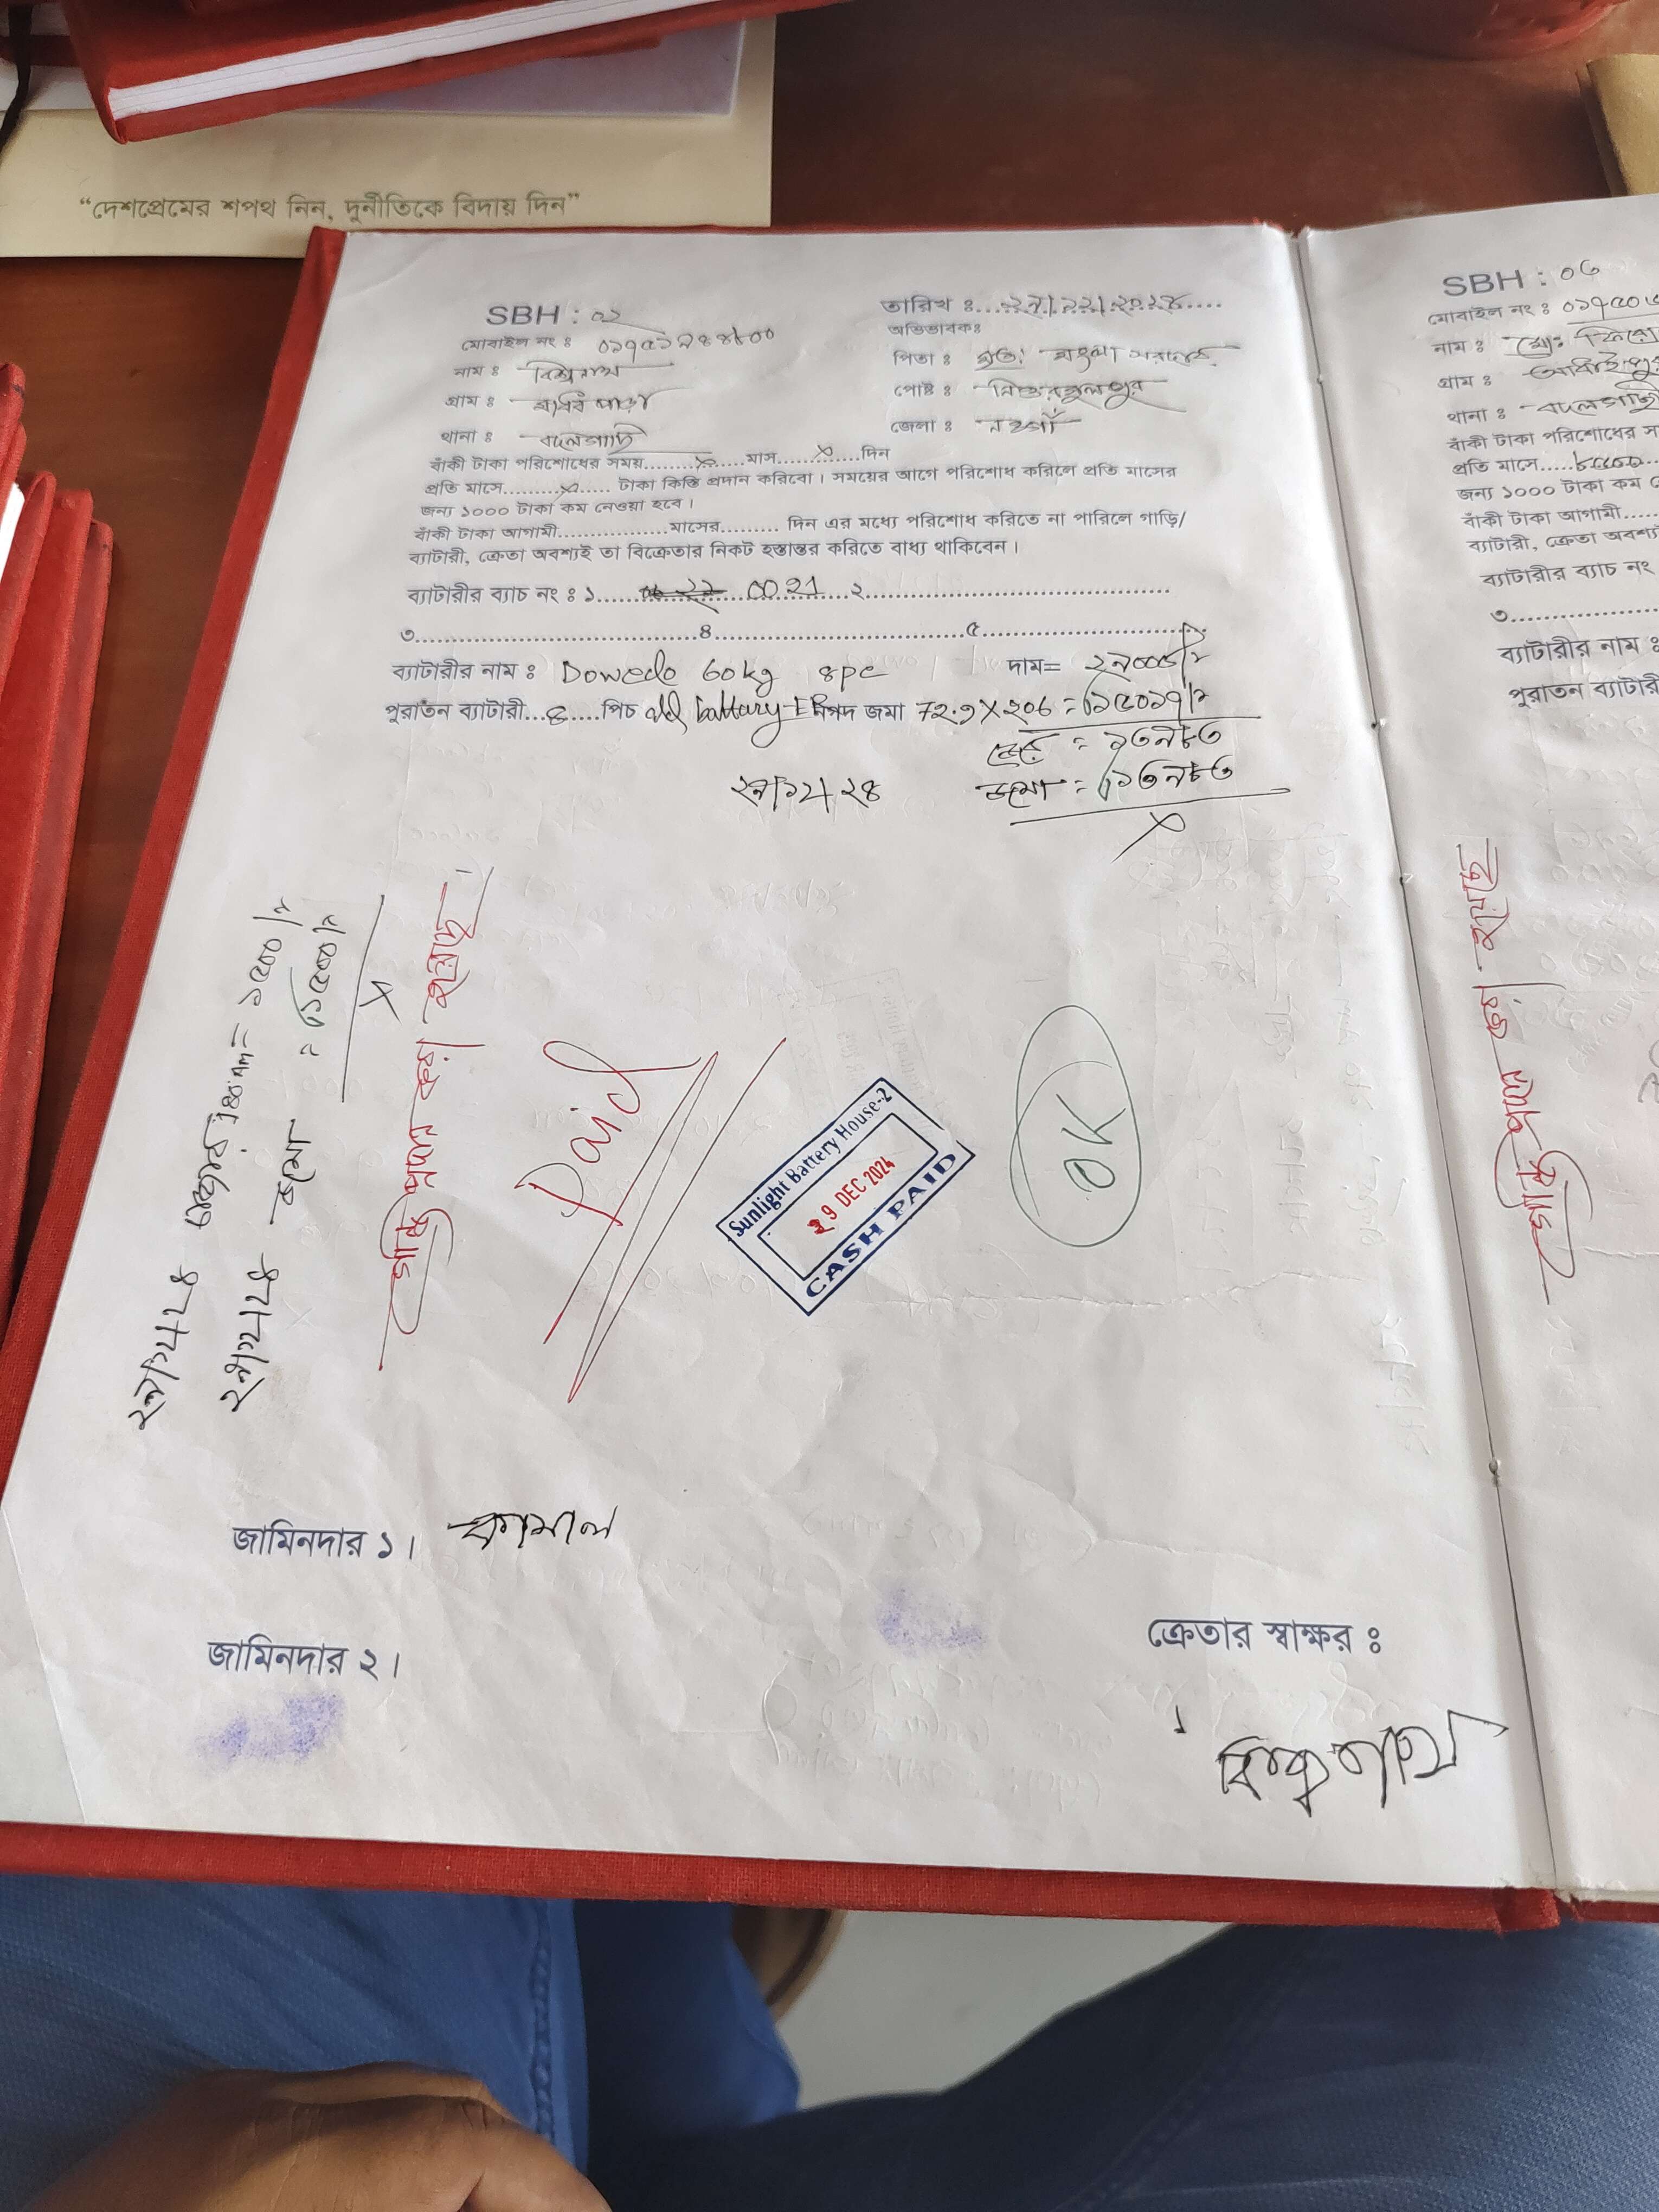 “দেশপ্রেমের শপথ নিন, দুর্নীতিকে বিদায় দিন”
SBH : ০২
তারিখ ঃ....২৯/১২/২০২৪....
মোবাইল নং ঃ
অভিভাবকঃ
নাম ঃ বিশ্বনাথ
পিতা ঃ মৃত:
গ্রাম ঃ
পোষ্ট ঃ
থানা ঃ বদলগাছি
জেলা ঃ নওগাঁ
বাঁকী টাকা পরিশোধের সময়.......×.....মাস.....×.....দিন
প্রতি মাসে..........×...... টাকা কিস্তি প্রদান করিবো। সময়ের আগে পরিশোধ করিলে প্রতি মাসের
জন্য ১০০০ টাকা কম নেওয়া হবে।
বাঁকী টাকা আগামী....................মাসের.......... দিন এর মধ্যে পরিশোধ করিতে না পারিলে গাড়ি/
ব্যাটারী, ক্রেতা অবশ্যই তা বিক্রেতার নিকট হস্তান্তর করিতে বাধ্য থাকিবেন।
ব্যাটারীর ব্যাচ নং ঃ ১...... 0021....২......................................................
৩....................................................৪...............................................৫......................................
ব্যাটারীর নাম ঃ Dowedo 60kg ৪pc দাম= ২৯০০০/-
পুরাতন ব্যাটারী...৪....পিচ old battary নগদ জমা 72.9×২০৬ = ১৫০১৭/-
= ১৩৯৮৩
জমা = ১৩৯৮৩
×
২৯/১২/২৪
২৯/১২/২৪ = ১৫০০/-
২৯/১২/২৪ জমা = ১৫০০/-
×
প্রদান করা হয়েছে।
Paid
Sunlight Battery House-2
29 DEC 2024
CASH PAID
OK
জামিনদার ১। কামাল
জামিনদার ২।
ক্রেতার স্বাক্ষর ঃ
বিশ্বনাথ
SBH : ০৩
মোবাইল নং ঃ
নাম ঃ মোঃ
গ্রাম ঃ
থানা ঃ বদলগাছী
বাঁকী টাকা পরিশোধের স
প্রতি মাসে.....৮৫০০
জন্য ১০০০ টাকা কম
বাঁকী টাকা আগামী......
ব্যাটারী, ক্রেতা অবশ্য
ব্যাটারীর ব্যাচ নং
৩..............
ব্যাটারীর নাম ঃ
পুরাতন ব্যাটারী
প্রদান করা হয়েছে